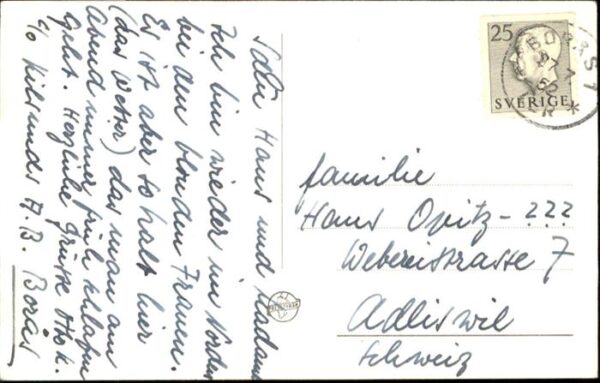 Salu Hans und Madame
Ich bin wieder im Norden
bei den blonden Frauen.
Es ist aber so kalt hier
(das Wetter) das man am
Abend immer früh schlafen
geht. Herzliche Grüsse Otto K.
c/o Kilsunds A.B. Borås
25
SVERIGE
BORÅS 1
familie
Hans Opitz - ???
Webereistrasse 7
Adliswil
Schweiz